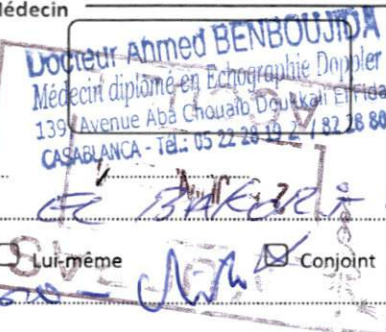 Médecin
Docteur Ahmed BENBOUJIDA
Médecin diplômé en Echographie Doppler
139, Avenue Aba Chouaïb Doukkali El Fida
CASABLANCA - Tél.: 05 22 28
EL BAKOURI
Lui-même Conjoint